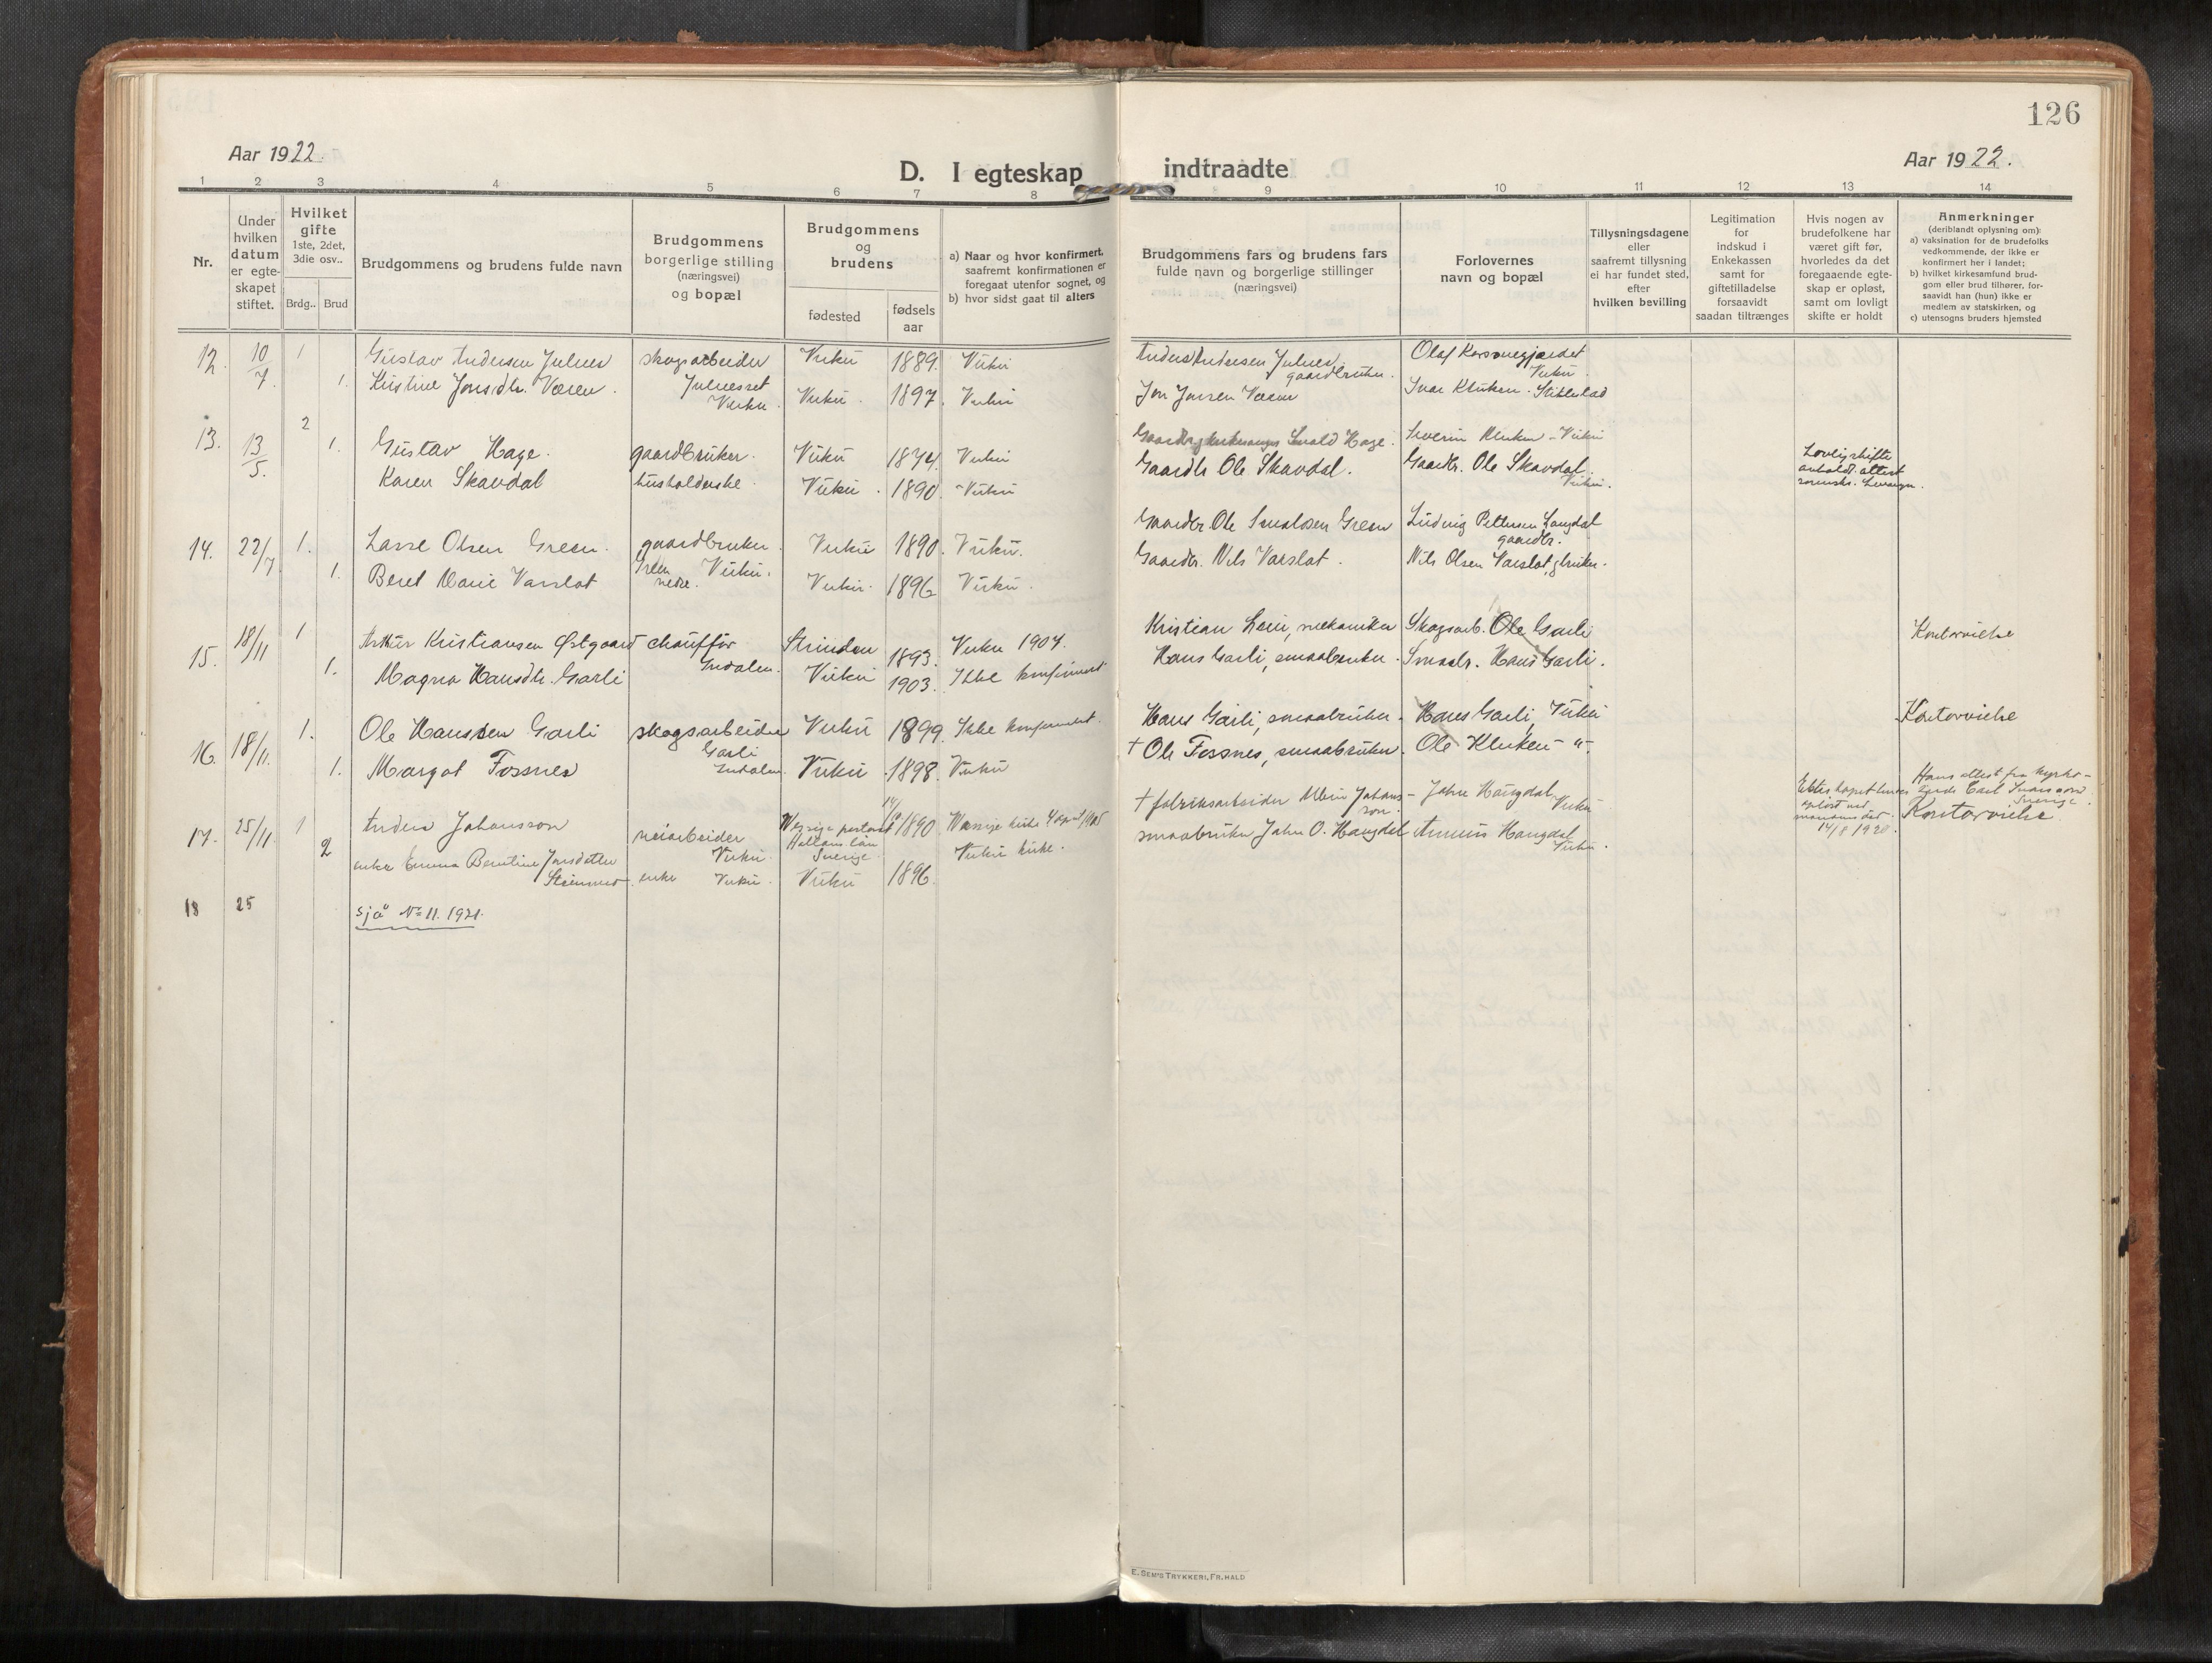 126
Aar 1922.
D. I egteskap indtraadte
Aar 1922.
1 2 3 4 5 6 7 8 9 10 11 12 13 14
Nr.
Under
hvilken
datum
er egte-
skapet
stiftet.
Hvilket
gifte
1ste, 2det,
3die osv..
Brdg.. Brud
Brudgommens og brudens fulde navn
Brudgommens
borgerlige stilling
(næringsvei)
og bopæl
Brudgommens
og
brudens
fødested
fødsels
aar
a) Naar og hvor konfirmert,
saafremt konfirmationen er
foregaat utenfor sognet, og
b) hvor sidst gaat til alters
Brudgommens fars og brudens fars
fulde navn og borgerlige stillinger
(næringsvei)
Forlovernes
navn og bopæl
Tillysningsdagene
eller
saafremt tillysning
ei har fundet sted,
efter
hvilken bevilling
Legitimation
for
indskud i
Enkekassen
samt for
giftetilladelse
forsaavidt
saadan tiltrænges
Hvis nogen av
brudefolkene har
været gift før,
hvorledes da det
foregaaende egte-
skap er opløst,
samt om lovligt
skifte er holdt
Anmerkninger
(deriblandt oplysning om):
a) vaksination for de brudefolks
vedkommende, der ikke er
konfirmert her i landet;
b) hvilket kirkesamfund brud-
gom eller brud tilhører, for-
saavidt han (hun) ikke er
medlem av statskirken, og
c) utensogns bruders hjemsted
12. 10/7. 1 Gustav Andersen Julnes skogsarbeider Vuku 1889. Vuku
1. Kristine Jonsdtr. Væren. Julnesset Vuku. Vuku. 1897. Vuku
Anders Andersen Julnes gaardbruker. Olaf
Vuku.
Jon Jonsen Væren Ivar Kluken. Stiklestad
13. 13/5. 2 1. Gustav Hage. gaardbruker. Vuku 1874. Vuku
Karen Skavdal husholderske. Vuku. 1890. Vuku
Hage. Severin Kluken - Vuku
Gaardbr. Ole Skavdal. Gaardbr. Ole Skavdal.
Vuku.
Lovlig skifte
avholdt. attest
sorenskr. Levanger.
14. 22/7 1. Lasse Olsen Green. gaardbruker. Vuku 1890. Vuku.
Green nedre. Vuku.
1. Beret Marie Varslot Vuku. 1896 Vuku.
Gaardbr. Ole Green Ludvig Pettersen Langdal
gaardbr.
Gaardbr. Nils Varslot. Nils Olsen Varslot, gbruker.
15. 18/11 1 Arthur Kristiansen Østgaard chauffør Strinden 1893. Vuku 1907.
1. Magna Hansdtr. Garli Indalen. Vuku 1903. Ikke konfirmert
Kristian Lein, mekaniker Skogsarb. Ole Garli Kontorvielse
Hans Garli, smaabruker. Smaabr. Hans Garli.
16. 18/11. 1. Ole Hanssen Garli skogsarbeider Vuku 1899. Ikke konfirmert.
Garli
Indalen.
1. Margot Fossnes Vuku 1898. Vuku
Hans Garli, smaabruker. Hans Garli, Vuku Kontorvielse
† Ole Fossnes, smaabruker. Ole Kluken - " -
17. 25/11 1 Anders Johansson veiarbeider Vuku. Hallans län Sverige. 1890
2 enke Emma Berntine Jonsdatter enke Vuku. Vuku 1896. Vuku kirke.
† fabriksarbeider Johans-
son. John Haugdal
Vuku
smaabruker John O. Haugdal Haugdal
Vuku.
Ekteskapet
opløst ved
mannens død
14/8 1920.
Hans attest fra kyrko-
Carl
Sverige.
Kontorvielse
18 25 sjå No 11. 1921.
E. SEM'S TRYKKERI, FR.HALD